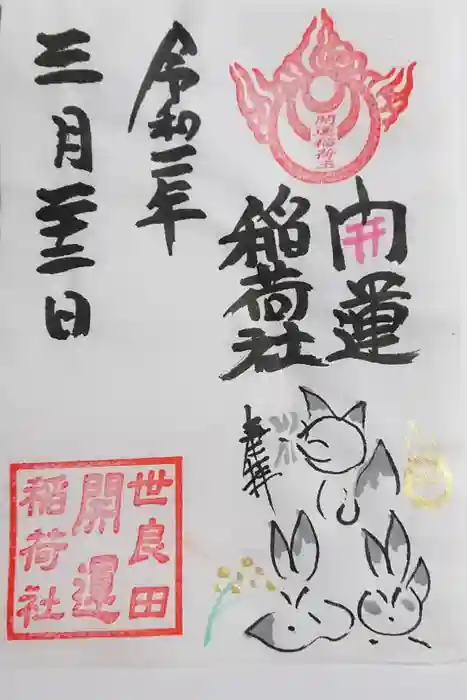 開運稲荷
開運
稲荷社
奉拝
令和二年
三月二十二日
世良田
開運
稲荷社